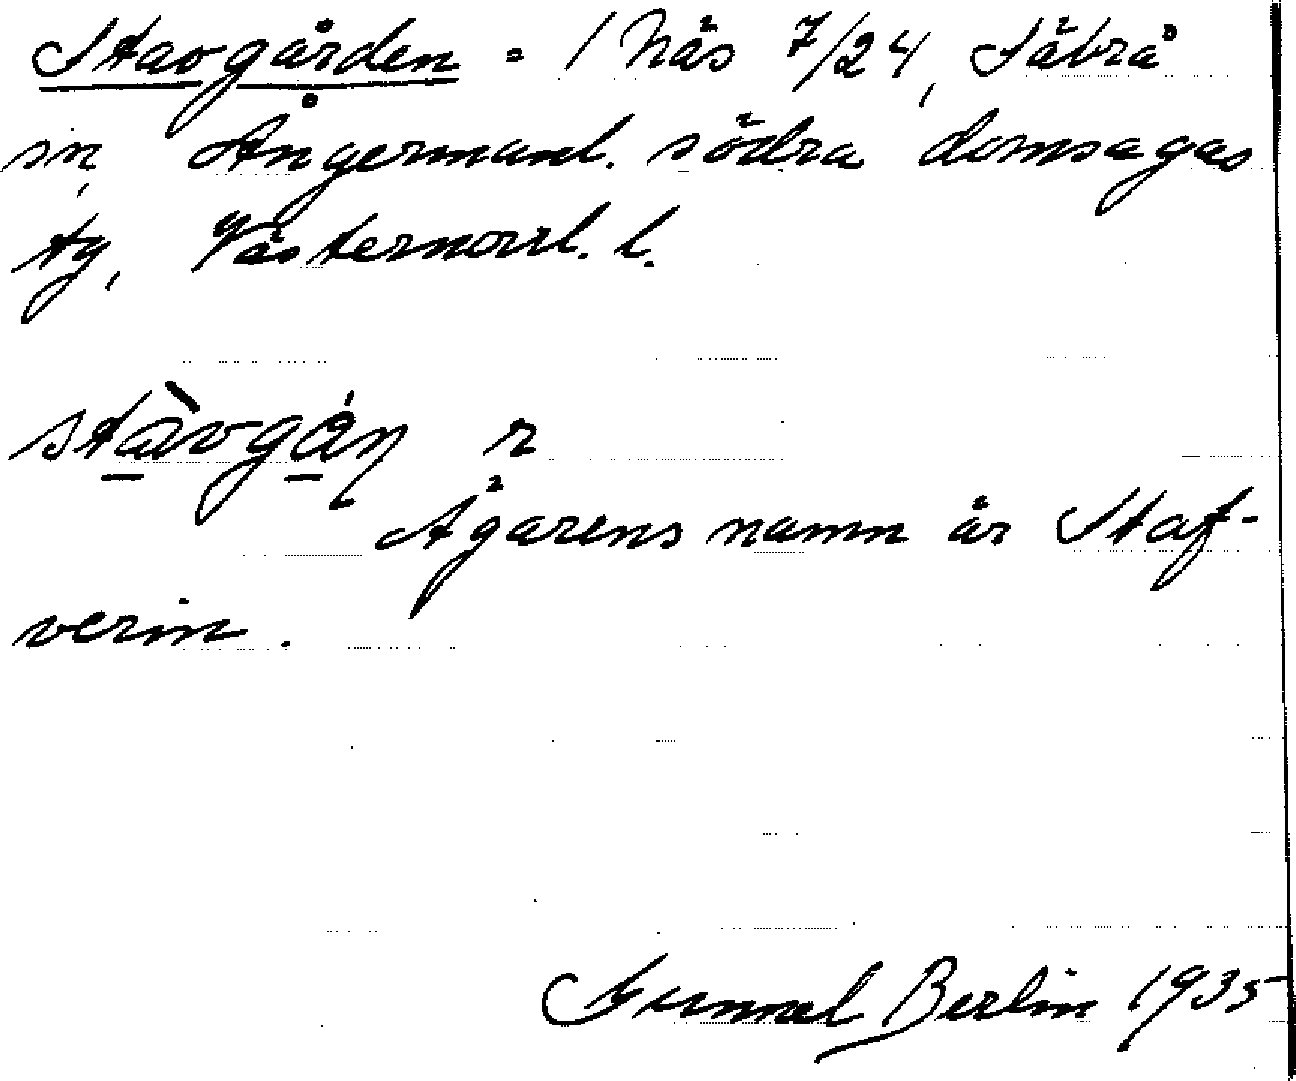 Stavgården = 1 Näs 7/24, Säbrå
sn, Ångermanl. södra domsagas
tg, Västernorrl. l.
stàvgán 2
Ägarens namn är Staf-
verin.
Gunnel Berlin 1935